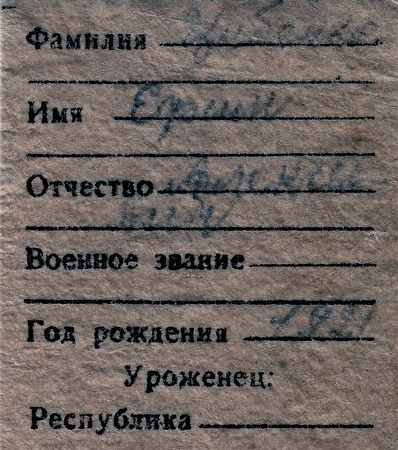 Фамилия
Имя Ефим
Отчество
Военное звание
Год рождения 1921
Уроженец:
Республика